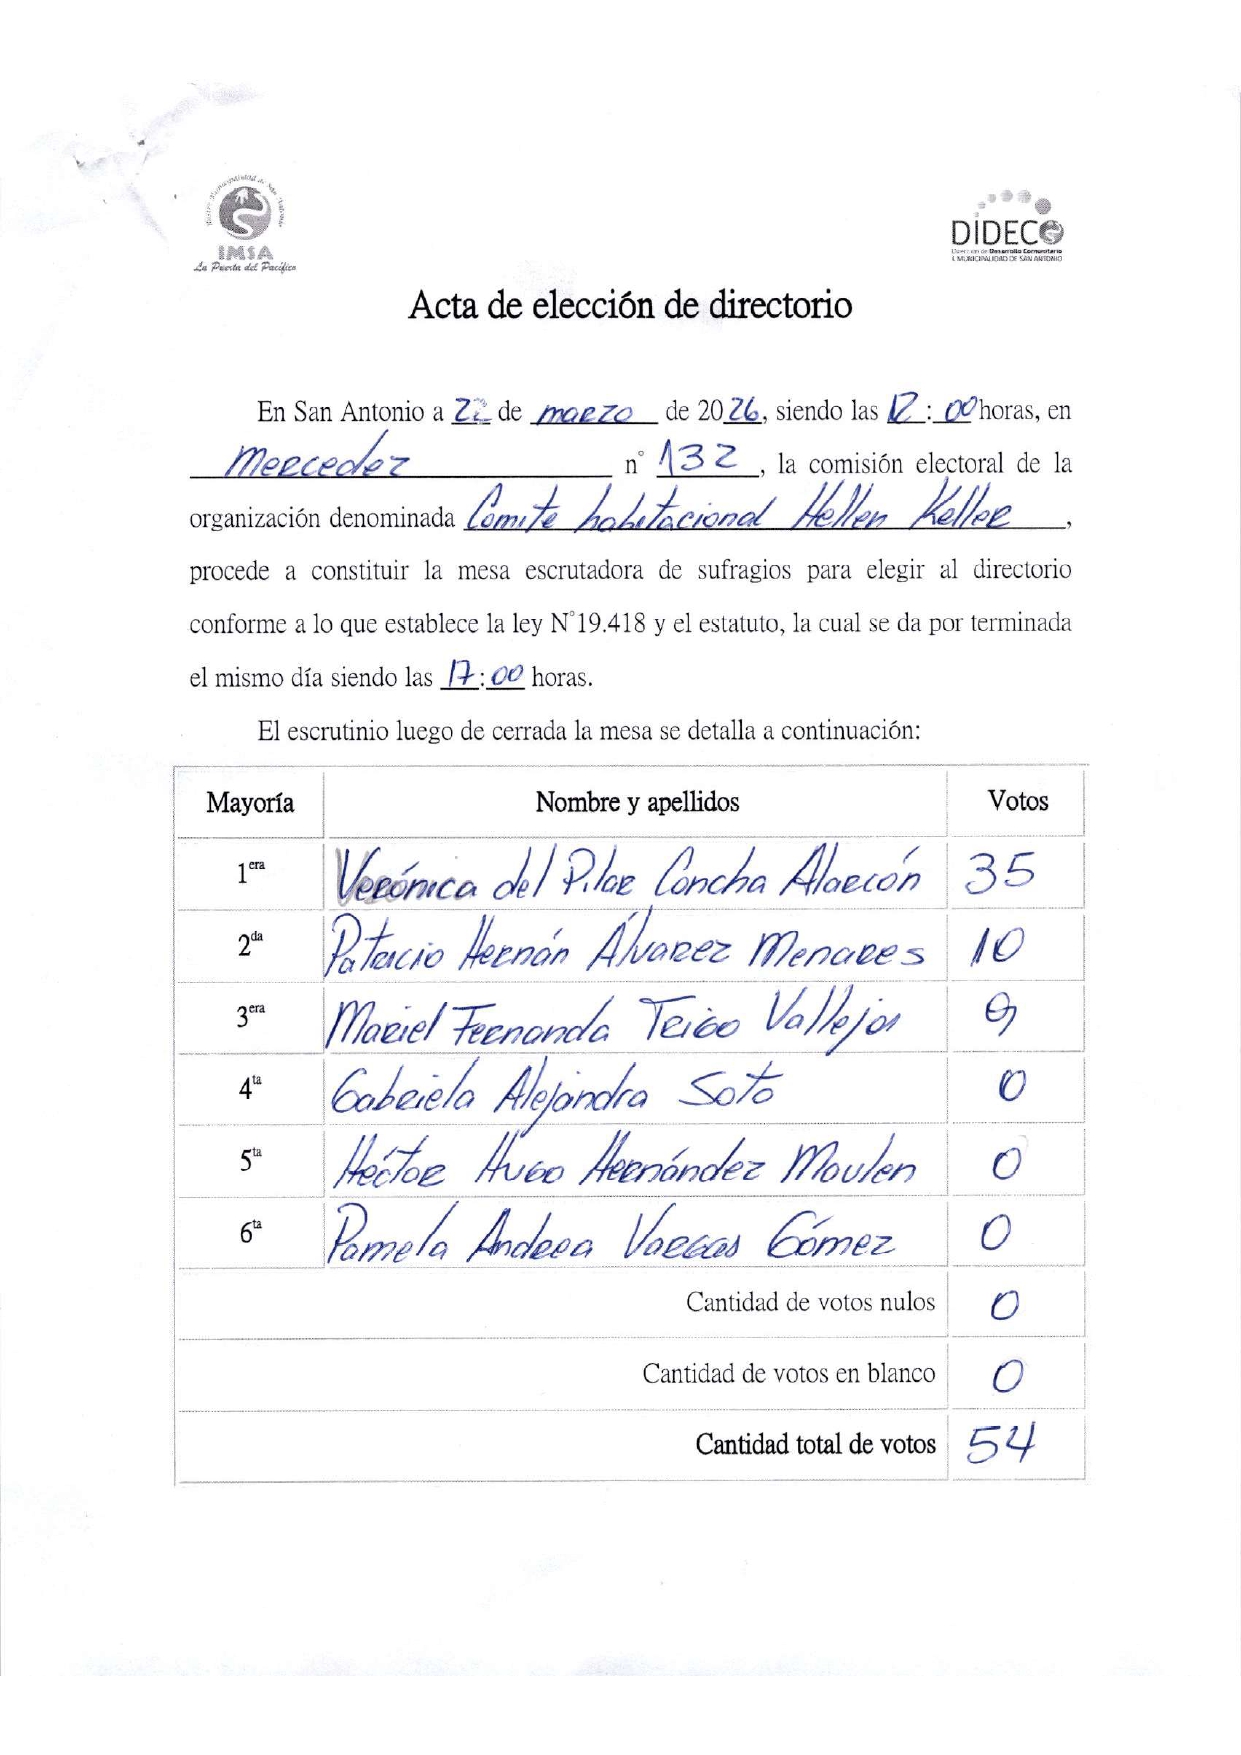 IMSA
La Puerta del Pacífico
DIDECO
Dirección de Desarrollo Comunitario
I. MUNICIPALIDAD DE SAN ANTONIO
Acta de elección de directorio
En San Antonio a 22 de marzo de 2026, siendo las 12:00 horas, en
Mercedez n° 132, la comisión electoral de la
organización denominada Comité habitacional Hellen Keller,
procede a constituir la mesa escrutadora de sufragios para elegir al directorio
conforme a lo que establece la ley N°19.418 y el estatuto, la cual se da por terminada
el mismo día siendo las 17:00 horas.
El escrutinio luego de cerrada la mesa se detalla a continuación:
Mayoría Nombre y apellidos Votos
1era Verónica del Pilar Concha Alarcón 35
2da Patricio Hernán Álvarez Menares 10
3era Mariel Fernanda Trigo Vallejos 9
4ta Gabriela Alejandra Soto 0
5ta Héctor Hugo Hernández Moulen 0
6ta Pamela Andrea Vargas Gómez 0
Cantidad de votos nulos 0
Cantidad de votos en blanco 0
Cantidad total de votos 54